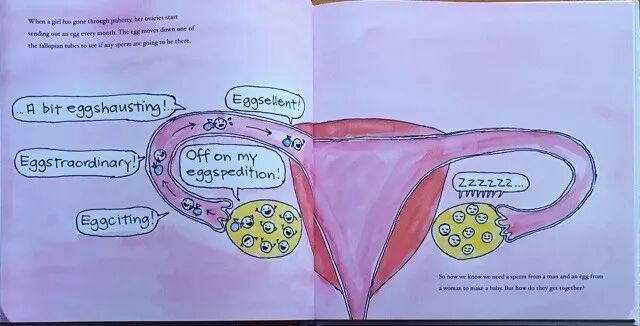 When a girl has gone through puberty, her ovaries start
sending out an egg every month. The egg moves down one of
the fallopian tubes to see if any sperm are going to be there.
...A bit eggshausting!...
Eggsellent!
Eggstraordinary!
Off on my
eggspedition!
Eggciting!
Zzzzzz...
So now we know we need a sperm from a man and an egg from
a woman to make a baby. But how do they get together?